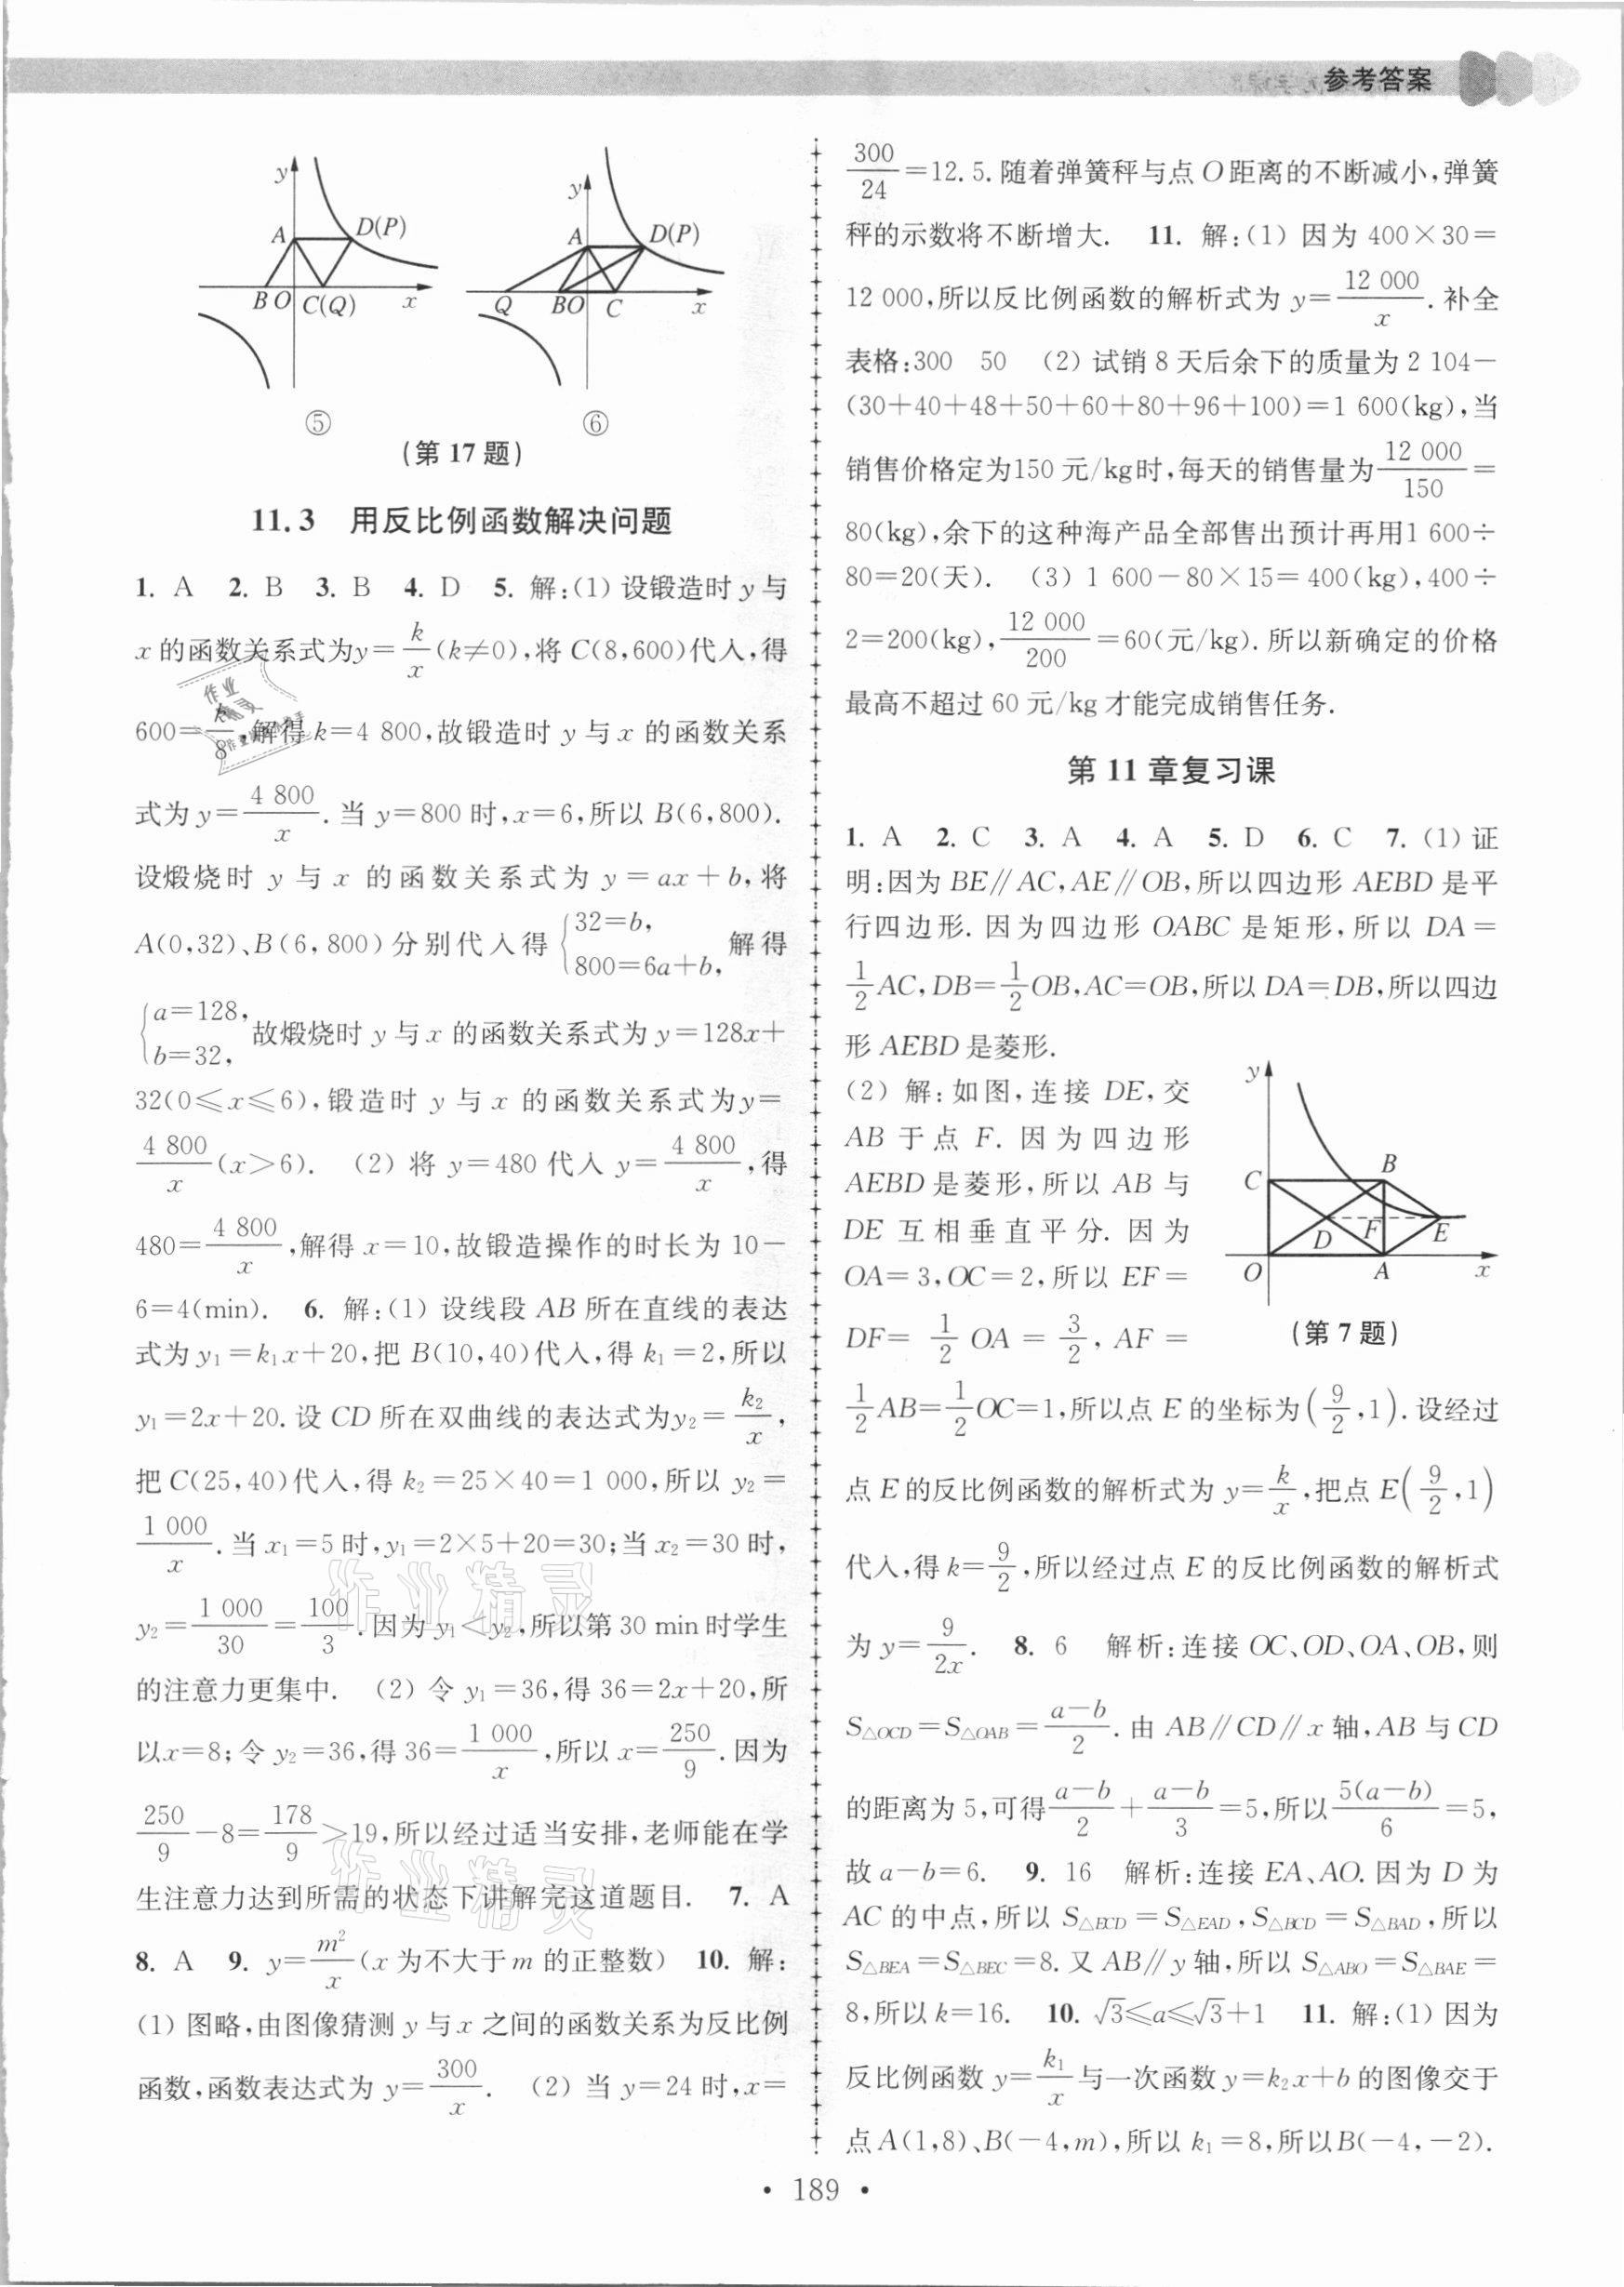 参考答案
y
A
D(P)
B O
C(Q)
x
⑤
y
A
D(P)
Q
BO
C
x
⑥
(第 17 题)
11.3 用反比例函数解决问题
1. A 2. B 3. B 4. D 5. 解:(1) 设锻造时 y 与
x 的函数关系式为y=k/x(k≠0),将 C(8,600)代入,得
600=k/8,解得 k=4 800,故锻造时 y 与 x 的函数关系
式为 y=4 800/x.当 y=800 时,x=6,所以 B(6,800).
设煅烧时 y 与 x 的函数关系式为 y=ax+b,将
A(0,32)、B(6,800)分别代入得{32=b, 800=6a+b,解得
{a=128, b=32,故煅烧时 y 与 x 的函数关系式为 y=128x+
32(0≤x≤6),锻造时 y 与 x 的函数关系式为y=
4 800/x(x>6). (2) 将 y=480 代入 y=4 800/x,得
480=4 800/x,解得 x=10,故锻造操作的时长为 10-
6=4(min). 6. 解:(1) 设线段 AB 所在直线的表达
式为 y₁=k₁x+20,把 B(10,40)代入,得 k₁=2,所以
y₁=2x+20.设 CD 所在双曲线的表达式为y₂=k₂/x,
把 C(25,40)代入,得 k₂=25×40=1 000,所以 y₂=
1 000/x.当 x₁=5 时,y₁=2×5+20=30;当 x₂=30 时,
y₂=1 000/30=100/3.因为 y₁<y₂,所以第 30 min 时学生
的注意力更集中. (2) 令 y₁=36,得 36=2x+20,所
以x=8;令 y₂=36,得 36=1 000/x,所以 x=250/9.因为
250/9-8=178/9>19,所以经过适当安排,老师能在学
生注意力达到所需的状态下讲解完这道题目. 7. A
8. A 9. y=m²/x(x 为不大于 m 的正整数) 10. 解:
(1) 图略,由图像猜测 y 与 x 之间的函数关系为反比例
函数,函数表达式为 y=300/x. (2) 当 y=24 时,x=
300/24=12.5.随着弹簧秤与点 O 距离的不断减小,弹簧
秤的示数将不断增大. 11. 解:(1) 因为 400×30=
12 000,所以反比例函数的解析式为 y=12 000/x.补全
表格:300 50 (2) 试销 8 天后余下的质量为 2 104-
(30+40+48+50+60+80+96+100)=1 600(kg),当
销售价格定为150 元/kg时,每天的销售量为12 000/150=
80(kg),余下的这种海产品全部售出预计再用1 600÷
80=20(天). (3) 1 600-80×15=400(kg),400÷
2=200(kg),12 000/200=60(元/kg).所以新确定的价格
最高不超过 60 元/kg 才能完成销售任务.
第 11 章复习课
1. A 2. C 3. A 4. A 5. D 6. C 7. (1) 证
明:因为 BE∥AC,AE∥OB,所以四边形 AEBD 是平
行四边形.因为四边形 OABC 是矩形,所以 DA=
1/2AC,DB=1/2OB,AC=OB,所以 DA=DB,所以四边
形 AEBD 是菱形.
(2) 解:如图,连接 DE,交
AB 于点 F. 因为四边形
AEBD 是菱形,所以 AB 与
DE 互相垂直平分.因为
OA=3,OC=2,所以 EF=
DF= 1/2 OA = 3/2, AF =
y
C
B
D
F
E
O
A
x
(第 7 题)
1/2AB=1/2OC=1,所以点 E 的坐标为(9/2,1).设经过
点 E 的反比例函数的解析式为 y=k/x,把点 E(9/2,1)
代入,得 k=9/2,所以经过点 E 的反比例函数的解析式
为 y=9/2x. 8. 6 解析:连接 OC、OD、OA、OB,则
S△OCD=S△OAB=a-b/2.由 AB∥CD∥x 轴,AB 与 CD
的距离为 5,可得a-b/2+a-b/3=5,所以5(a-b)/6=5,
故 a-b=6. 9. 16 解析:连接 EA、AO.因为 D 为
AC 的中点,所以 S△ECD=S△EAD,S△BCD=S△BAD,所以
S△BEA=S△BEC=8.又 AB∥y 轴,所以 S△ABO=S△BAE=
8,所以 k=16. 10. √3≤a≤√3+1 11. 解:(1) 因为
反比例函数 y=k₁/x与一次函数 y=k₂x+b 的图像交于
点 A(1,8)、B(-4,m),所以 k₁=8,所以B(-4,-2).
• 189 •
作业精灵
作业精灵